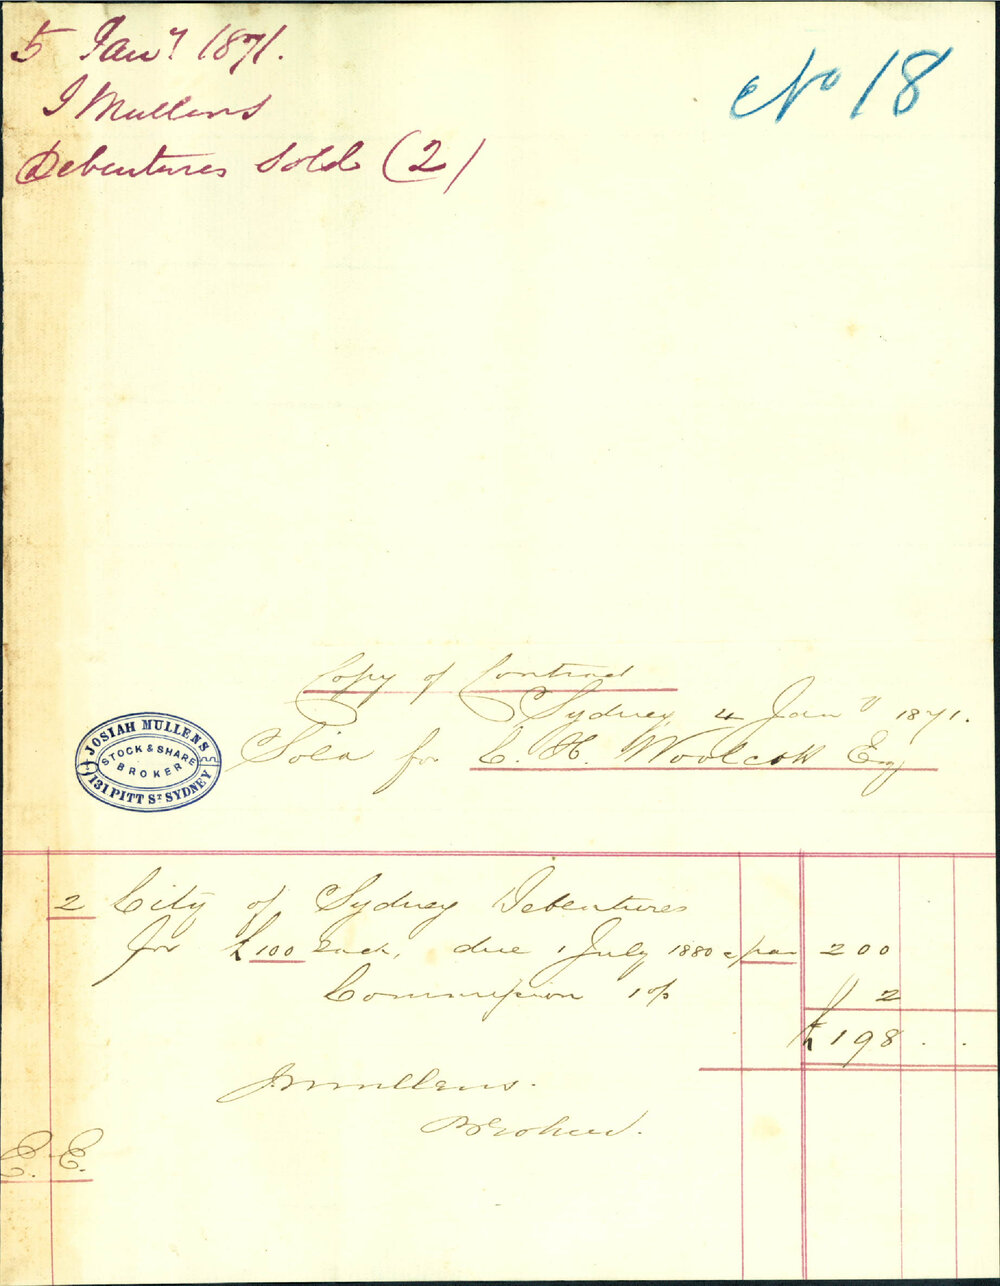 5 Jany 1871.
J Mullens
Debentures Sold (2)
No 18
Copy of Contract
Sydney 4 Jany 1871.
Sold for C. H. Woolcott Esq
JOSIAH MULLENS
STOCK & SHARE
BROKER
131 PITT ST SYDNEY
2 City of Sydney Debentures
for £100 each, due 1 July 1880 @ par 200
Commission 1 % 2
£198 . .
J Mullens.
Broker.
E. E.